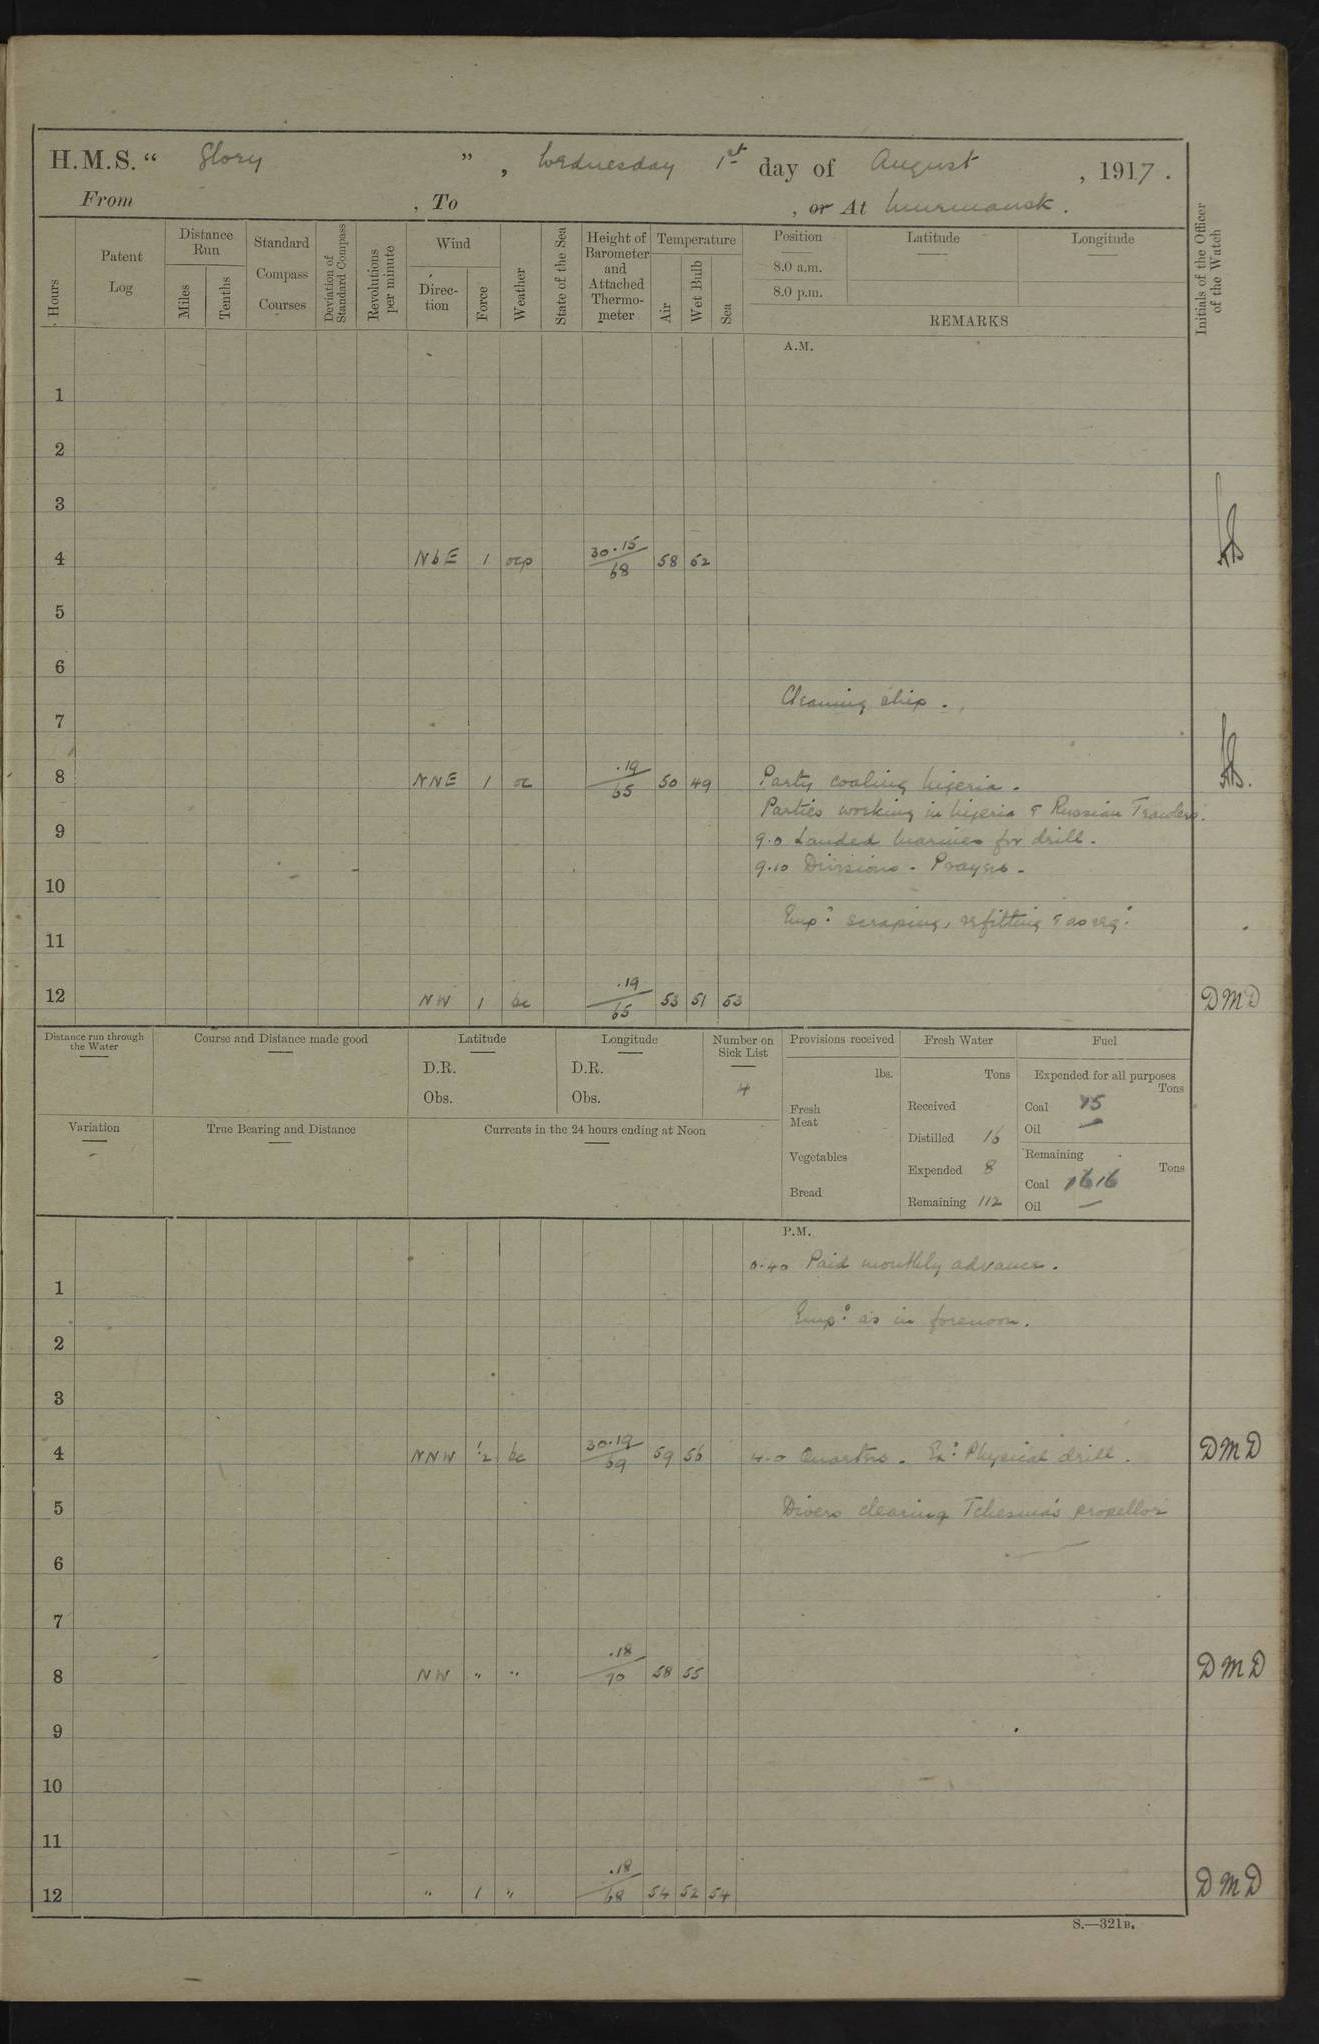 H.M.S. “ Glory ” , Wednesday 1st day of August , 1917 .
From , To , or At Murmansk .
Hours
Patent Log
Distance Run
Miles
Tenths
Standard Compass Courses
Deviation of Standard Compass
Revolutions per minute
Wind
Direction
Force
Weather
State of the Sea
Height of Barometer and Attached Thermometer
Temperature
Air
Wet Bulb
Sea
Position
8.0 a.m.
8.0 p.m.
Latitude
Longitude
REMARKS
Initials of the Officer of the Watch
A.M.
1
2
3
4 NbE 1 ocp 30.15/68 58 52
5
6
Cleaning ship .
7
8 NNE 1 oc .19/65 50 49 Party coaling Nigeria .
Parties working in Nigeria & Russian Trawlers.
9
9.0 Landed Marines for drill .
9.10 Divisions . Prayers .
10
Emp: scraping, refitting & as req:
11
12 NW 1 bc .19/65 53 51 53 DMD
Distance run through the Water
Course and Distance made good
Latitude
D.R.
Obs.
Longitude
D.R.
Obs.
Number on Sick List
4
Provisions received
lbs.
Fresh Meat
Vegetables
Bread
Fresh Water
Tons
Received
Distilled 16
Expended 8
Remaining 112
Fuel
Expended for all purposes
Tons
Coal 75
Oil —
Remaining
Tons
Coal 1616
Oil —
Variation
True Bearing and Distance
Currents in the 24 hours ending at Noon
P.M.
0.40 Paid monthly advance .
1
Emp: as in forenoon .
2
3
4 NNW ½ bc 30.19/69 59 56 4.0 Quarters . Ex: Physical drill . DMD
5 Divers clearing Tchesma's propellor
6
7
8 NW " " .18/70 58 55 DMD
9
10
11
12 " 1 " .18/68 54 52 54 DMD
S.—321B.